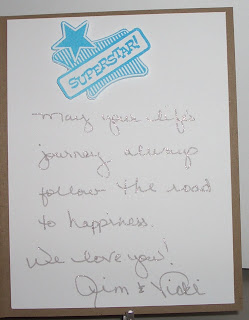 SUPERSTAR!
May your life's
journey always
follow the road
to happiness.
We love you!
Jim & Vicki